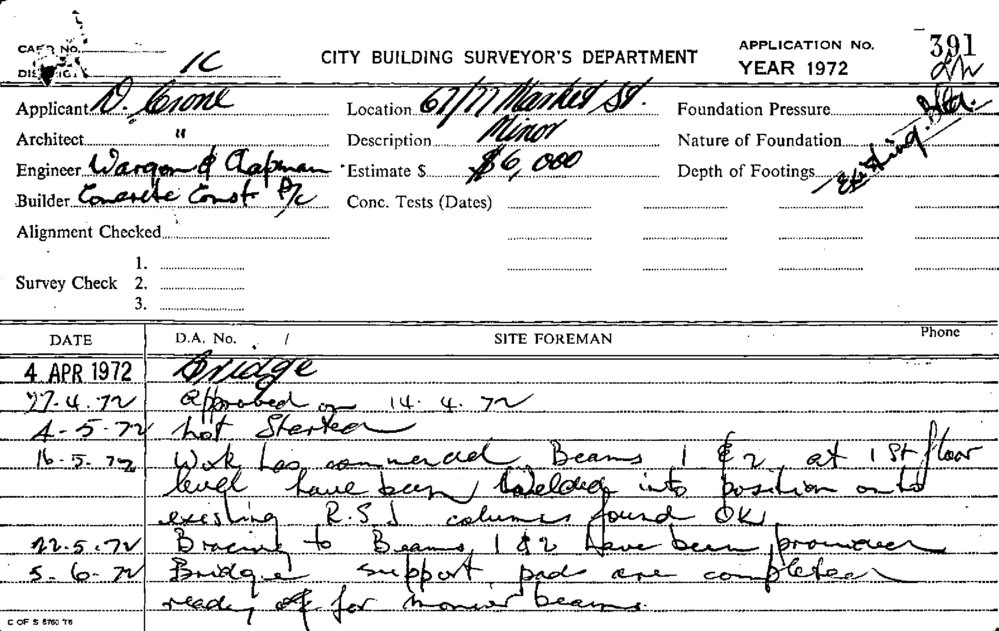 CARD No.
DISTRICT
1C
CITY BUILDING SURVEYOR'S DEPARTMENT
APPLICATION No. 391
YEAR 1972
Applicant D. Crone
Location 67/77 Market St.
Foundation Pressure
Architect "
Description Minor
Nature of Foundation Existing Bld.
Engineer Wargon & Chapman
Estimate $ $6,000
Depth of Footings
Builder Concrete Const P/L
Conc. Tests (Dates)
Alignment Checked
Survey Check 1.
2.
3.
DATE D.A. No. / SITE FOREMAN Phone
4 APR 1972 Bridge
27.4.72 Approved on 14.4.72
4-5-72 Not Started
16-5.72 Work has commenced Beams 1 & 2 at 1st floor
level have been welded into position onto
existing R.S.J columns found OK
22.5.72 Bracing to Beams 1 & 2 have been provided
5-6-72 Bridge support pads are completed
ready for monier beams.
C OF S 8760 76